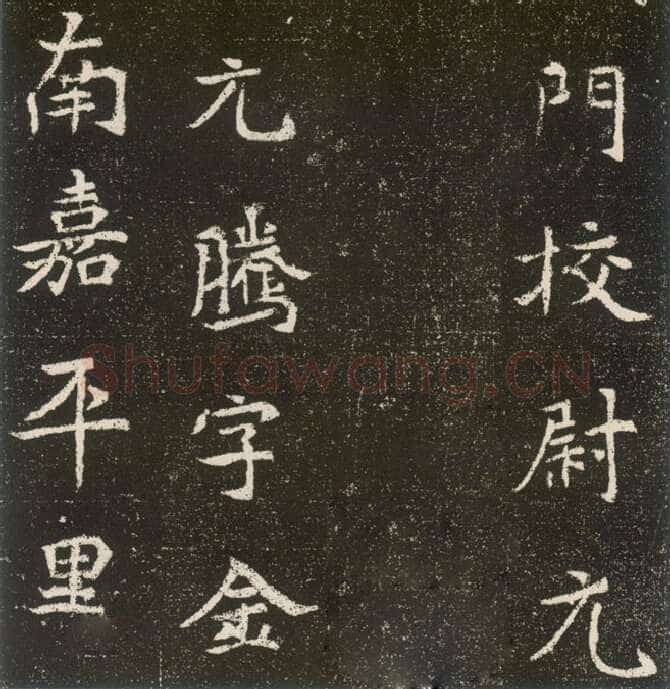 門校尉元
元騰字金
南嘉平里
Shufawang.CN